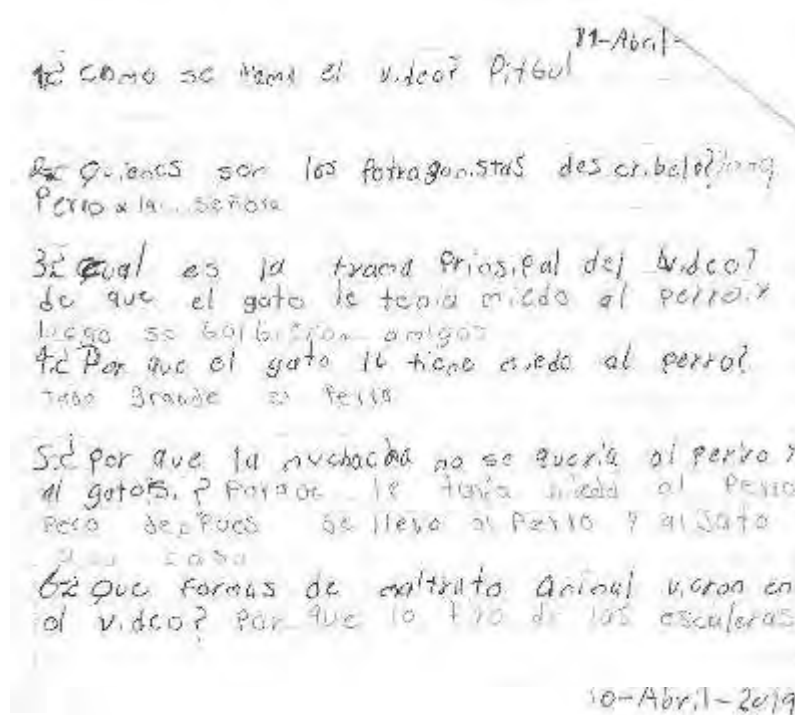 11-Abril-
1¿ Como se llama el video? PitGul
2¿ Quienes son los Potragonistas describelo?
Perro x la señora
3¿ Cual es la trama Prinsipal del video?
de que el gato le tenia miedo al perro y
luego se bolbieron amigos
4¿ Por que el gato le tiene miedo al perro?
Grande el Perro
5¿ por que la muchacha no se queria al perro y
al gatos? Porque le tenia miedo al Perro
Pero despues se llevo al Perro y al Gato
a su casa
6¿ Que formas de maltrato animal vieron en
el video? Por que lo tiro de las escaleras
10-Abril-2019